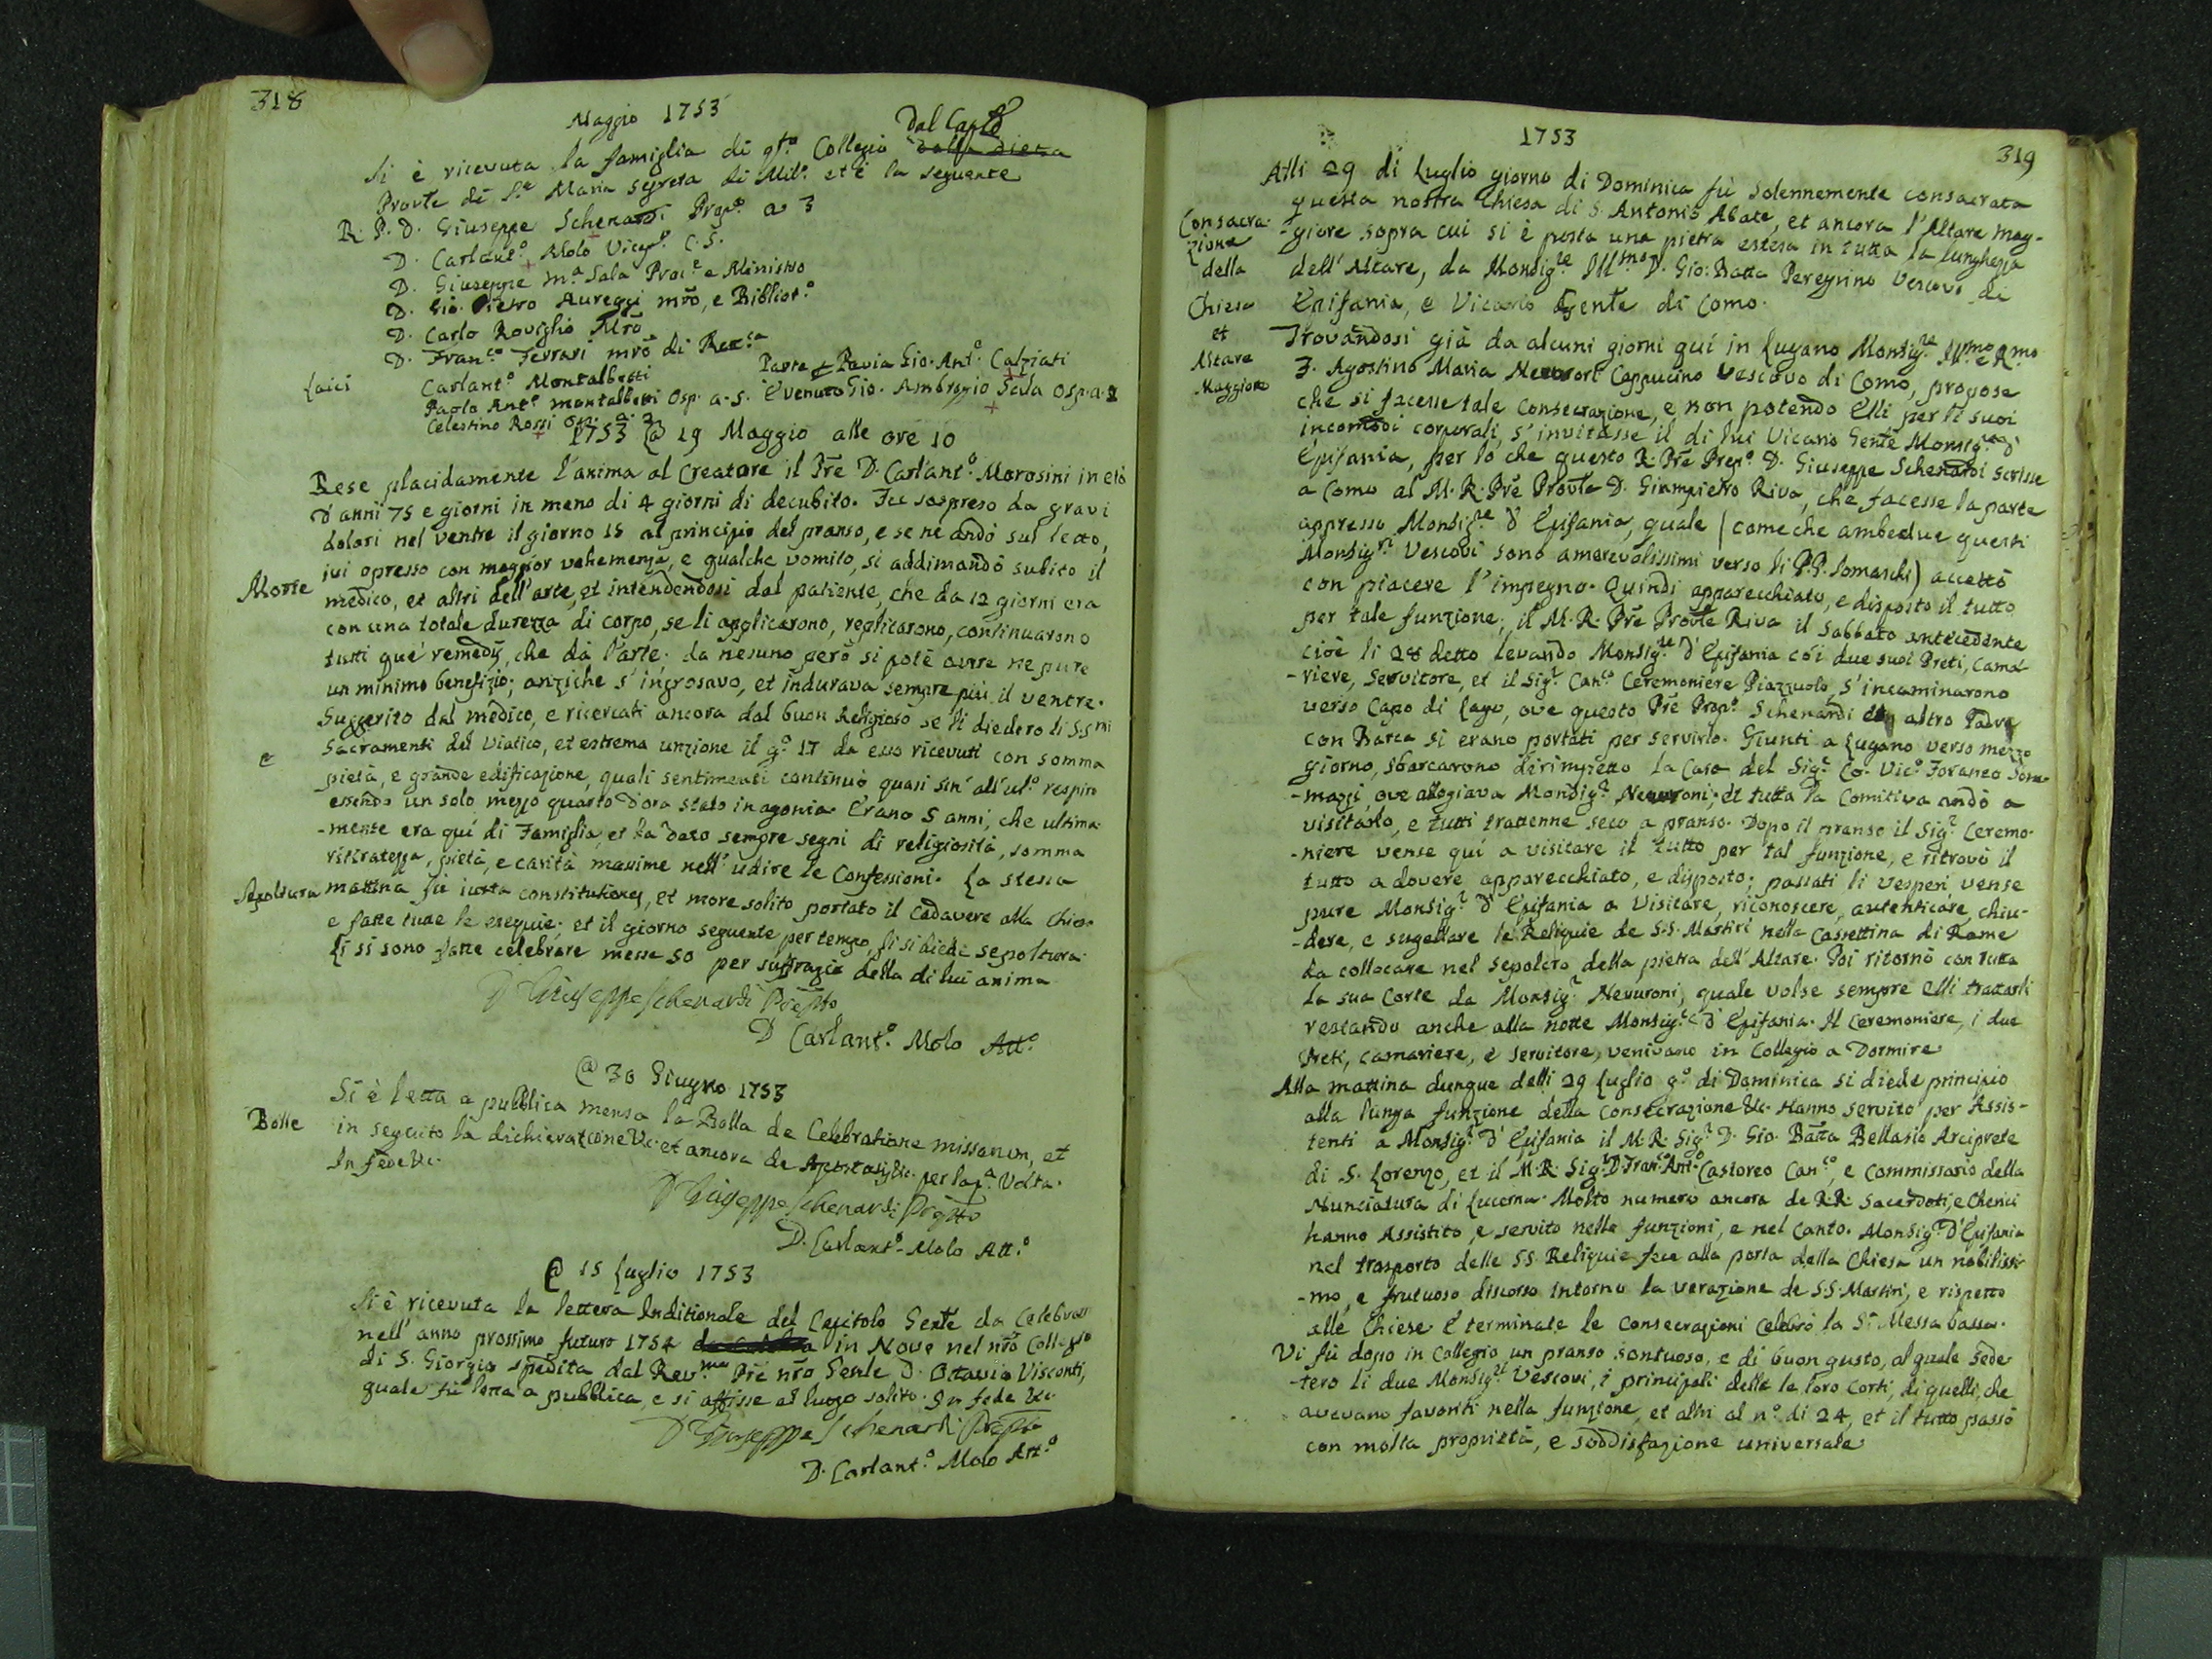 318
Maggio 1753
Dal Capto
Si è ricevuta la famiglia di qto Collegio dalla dieta
Provle di Sta Maria segreta di Milo et è la seguente
R. P. D. Giuseppe Schenardi Prepo a 3
D. Carlanto Molo Vicepo C. S.
D. Giuseppe Ma Sala Proce e Ministro
D. Gio. Pietro Aureggi mrõ, e Biblioto
D. Carlo Roviglio Mrõ
D. Franco Ferrari mrõ di Retca
Laici
Carlanto Montalbetti
Parte p Pavia Gio. Anto Calziati
Paolo Anto montalbetti Osp. a. S. è venuto Gio. Ambrogio Scola Osp. a. 2
Celestino Rossi Osp. a. 2
1753 @ 19 Maggio alle ore 10
Rese placidamente l'anima al Creatore il Prẽ D. Carl'anto Morosini in età
d'anni 75 e giorni in meno di 4 giorni di decubito. Fu sorpreso da gravi
dolori nel ventre il giorno 15 al principio del pranso, e se ne andò sul letto,
ivi opresso con maggior vehemenza, e qualche vomito, si addimandò subito il
Morte
medico, et altri dell'arte, et intendendosi dal patiente, che da 12 giorni era
con una totale durezza di corpo, se li applicarono, replicarono, continuarono
tutti que' remedij, che dà l'arte; da nesuno però si potè avere ne pure
un minimo benefizio; anziche s'ingrosava, et indurava sempre più il ventre.
Suggerito dal medico, e ricercati ancora dal buon Religioso se li diedero li S.Smi
Sacramenti del Viatico, et estrema unzione il go 17 da esso ricevuti con somma
e
pietà, e grande edificazione, quali sentimenti continuò quasi sin' all'ulo respiro
essendo un solo mezzo quarto d'ora stato in agonia. Erano 5 anni, che ultima-
-mente era qui di Famiglia, et ha dato sempre segni di religiosità, somma
ritiratezza, pietà, e carità maxime nell' udire le Confessioni. La stessa
Sepoltura
mattina fù iuxta constitutiones, et more solito portato il cadavere alla Chiesa
e fatte tutte le esequie; et il giorno seguente per tempo, li si diede sepoltura.
Li si sono fatte celebrare messe 50 per suffragio della di lui anima
D Giuseppe Schenardi Prepto
D Carlanto Molo Atto
@ 30 Giugno 1753
Si è letta a pubblica mensa la Bolla de Celebratione missarum, et
Bolle
in seguito la dichiarazione &c. et ancora de Apostasijs &c. per la pa Volta.
In fede &c.
D Giuseppe Schenardi Prepto
D. Carlanto Molo Atto
@ 15 Luglio 1753
Si è ricevuta la lettera Inditionale del Capitolo Genle da Celebrarsi
nell' anno prossimo futuro 1754 in Nove nel nrõ Collegio
di S. Giorgio spedita dal Revmo Prẽ nrõ Genle D. Ottavio Visconti,
quale fù letta a pubblica, e si affisse al luogo solito. In fede &c.
D Giuseppe Schenardi Prepto
D. Carlanto Molo Atto
1753
319
Alli 29 di Luglio giorno di Dominica fù solennemente consacrata
questa nostra Chiesa di S. Antonio Abate, et ancora l'Altare mag-
Consacra-
zione
della
Chiesa
et
Altare
Maggiore
-giore sopra cui si è posta una pietra estesa in tutta la lunghezza
dell' Altare, da Monsigre Illmo D. Gio: Batta Peregrino Vescovo di
Epifania, e Vicario Genle di Como.
Trovandosi già da alcuni giorni quì in Lugano Monsigre Illmo e Rmo
F. Agostino Maria Neuroni Cappucino Vescovo di Como, propose
che si facesse tale Consecrazione, e non potendo Elli per li suoi
incomodi corporali, s'invitasse il di lui Vicario Genle Monsigre d'
Epifania, per lo che questo R. Prẽ Prepo D. Giuseppe Schenardi scrisse
a Como al M. R. Prẽ Provle D. Giampietro Riva, che facesse la parte
appresso Monsigre d'Epifania, quale (come che ambedue questi
Monsigri Vescovi sono amorevolissimi verso li P.P. Somaschi) accettò
con piacere l'impegno. Quindi apparecchiato, e disposto il tutto
per tale funzione, il M. R. Prẽ Provle Riva il Sabbato antecedente
cioè li 28 detto levando Monsigre d'Epifania co'i due suoi Preti, Cama-
-riere, Servitore, et il Sigr Canco Ceremoniere Piazzuolo, s'incaminarono
verso Capo di Lago, ove questo Prẽ Prepo Schenardi et altro Padre
con Barca si erano portati per servirlo. Giunti a Lugano verso mezzo
giorno, sbarcarono dirimpetto la Casa del Sigr Co. Vico Foraneo
-mazzi, ove allogiava Monsigr Neuroni; et tutta la Comitiva andò a
visitarlo, e tutti trattenne seco a pranso. Dopo il pranso il Sigr Ceremo-
-niere vense quì a visitare il tutto per tal funzione, e ritrovò il
tutto a dovere apparecchiato, e disposto; passati li vesperi vense
pure Monsigr d'Epifania a Visitare, riconoscere, autenticare, chiu-
-dere, e sugellare le Reliquie de S.S. Martiri nella Cassettina di Rame
da collocare nel sepolcro della pietra dell'Altare. Poi ritornò con tutta
la sua Corte da Monsigr Neuroni, quale volse sempre Elli trattarli
restando anche alla notte Monsigre d'Epifania. Il Ceremoniere, i due
Preti, camariere, e servitore, venivano in Collegio a Dormire.
Alla mattina dunque delli 29 Luglio go di Dominica si diede principio
alla lunga funzione della consecrazione &c. Hanno servito per Assis-
tenti a Monsigr d'Epifania il M. R. Sigr D. Gio. Batta Bellasio Arciprete
di S. Lorenzo, et il M. R. Sigr D. Franco Anto Castoreo Canco, e Commissario della
Nunciatura di Lucerna. Molto numero ancora de R.R. Sacerdoti, e Cherici
hanno Assistito, e servito nelle funzioni, e nel Canto. Monsigr D'Epifania
nel trasporto delle SS. Reliquie fece alla porta della Chiesa un nobilissi-
-mo, e frutuoso discorso intorno la verazione de S.S. Martiri, e rispetto
alle Chiese e terminate le consecrazioni celebrò la Sta Messa bassa.
Vi fù dopo in Collegio un pranso sontuoso, e di buon gusto, al quale sede-
-tero li due Monsigri Vescovi, i principali delle le loro Corti, di quelli, che
avevano favoriti nella funzione, et altri al no di 24, et il tutto passò
con molta proprietà, e soddisfazione universale